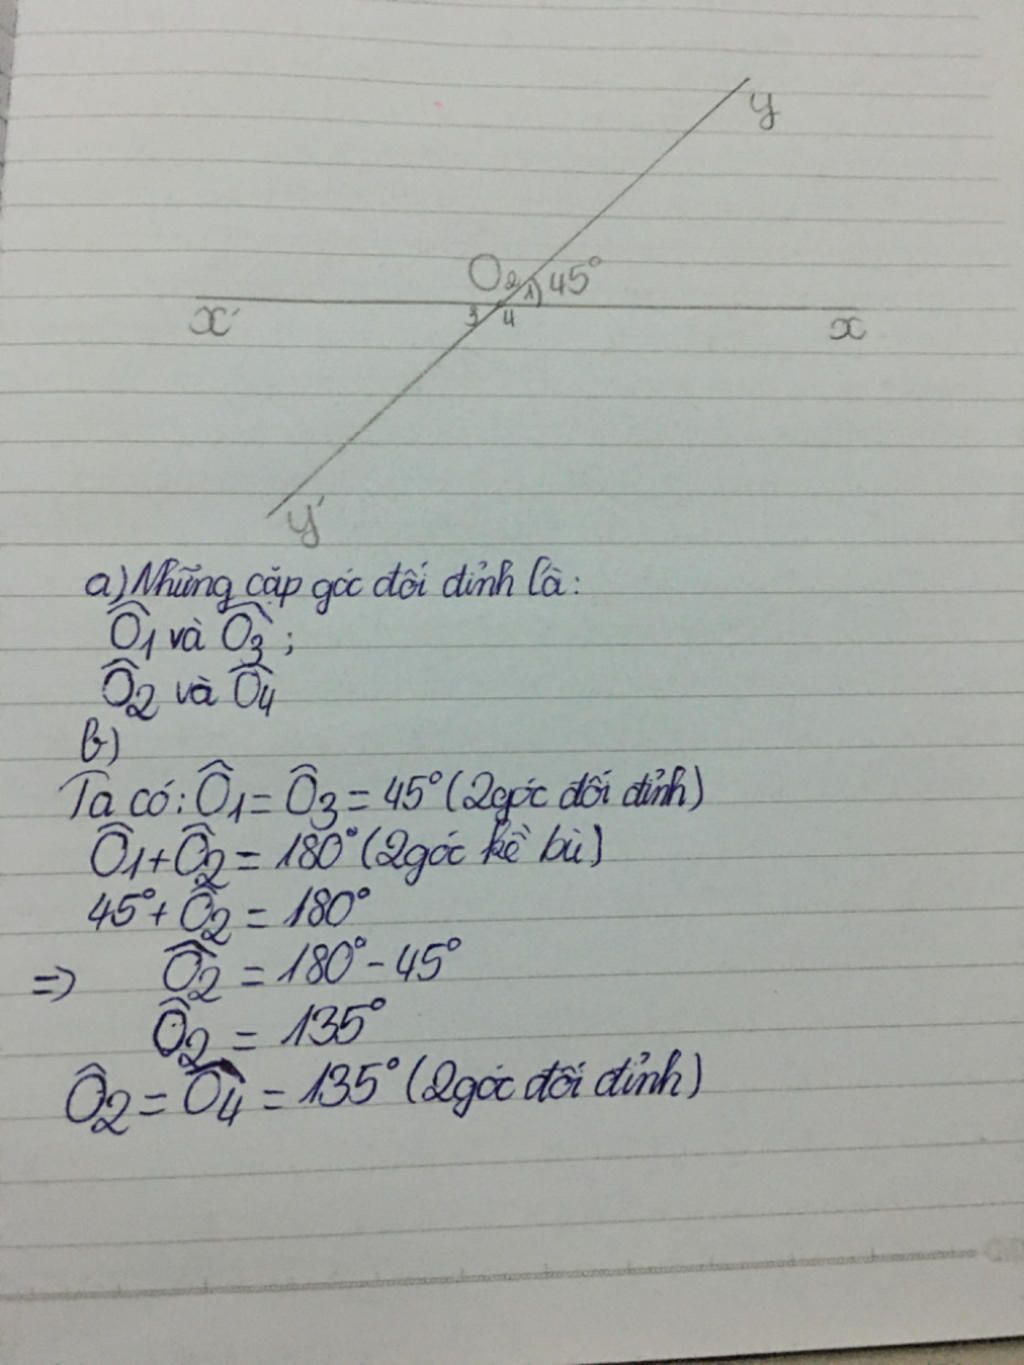 y
O2 1 45°
x' 3 4 x
y'
a) Những cặp góc đối đỉnh là:
Ô1 và Ô3 ;
Ô2 và Ô4
b)
Ta có: Ô1 = Ô3 = 45° (2 góc đối đỉnh)
Ô1 + Ô2 = 180° (2 góc kề bù)
45° + Ô2 = 180°
=> Ô2 = 180° - 45°
Ô2 = 135°
Ô2 = Ô4 = 135° (2 góc đối đỉnh)